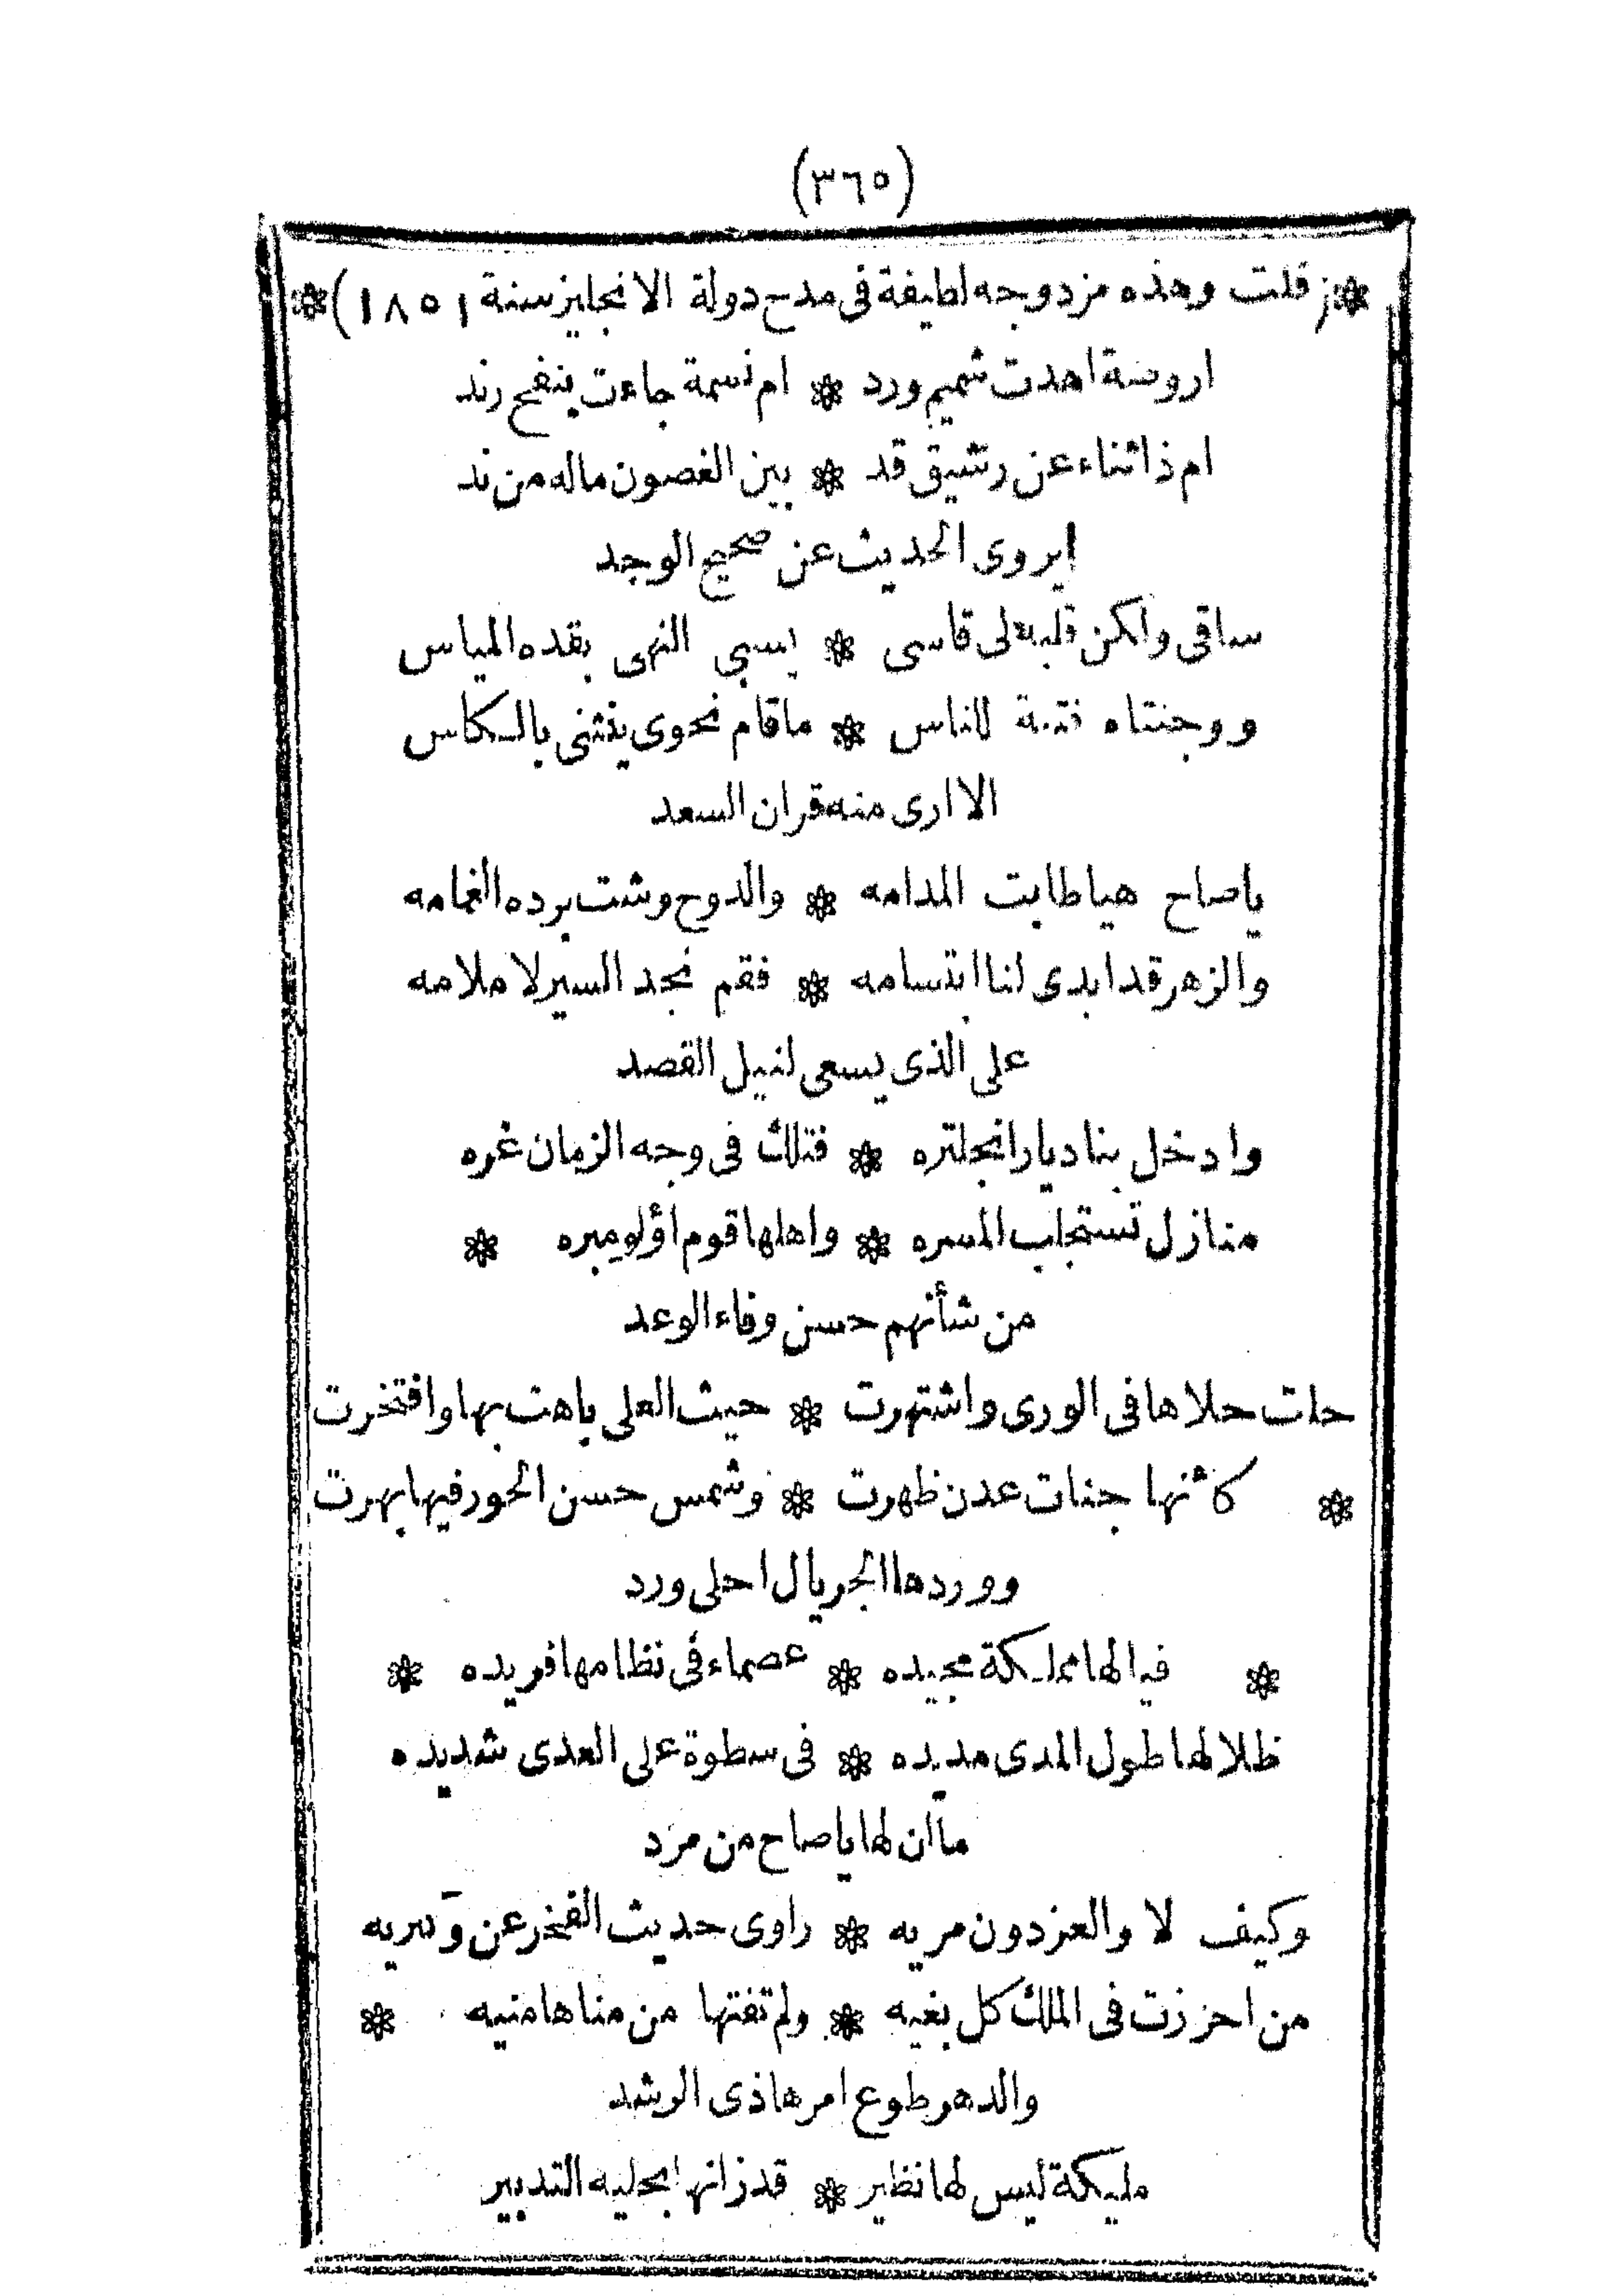 (٣٦٥)
❊(قلت وهذه مزدوجه لطيفة فى مدح دولة الانجليز سنة ١٨٥١)❊
اروضة اهدت شميم ورد ❊ ام نسمة جاءت بنفح رند
ام ذا ثناء عن رشيق قد ❊ بين الغصون ماله من ند
ايروى الحديث عن صحيح الوجد
ساقى ولكن قلبه لى قاسى ❊ يسبي النهى بقده المياس
ووجنتاه فتنة للناس ❊ ماقام نحوى ينثنى بالكاس
الا ارى منه قران السعد
ياصاح هيا طابت المدامه ❊ والدوح وشت برده الغمامه
والزهر قد ابدى لنا ابتسامه ❊ فقم نجد السير لا ملامه
على الذى يسعى لنيل القصد
وادخل بنا ديار انجلتره ❊ فتلك فى وجه الزمان غره
منازل تستجلب المسره ❊ واهلها قوم اؤلو مبره ❊
من شأنهم حسن وفاء الوعد
حلت حلاها فى الورى واشتهرت ❊ حيث العلى باهت بها وافتخرت
❊ كأنها جنات عدن ظهرت ❊ وشمس حسن الحور فيها بهرت
ووردها الجريال احلى ورد
❊ فيالها مملكة مجيده ❊ عصماء فى نظامها فريده ❊
ظلالها طول المدى مديده ❊ فى سطوة على العدى شديده
ما ان لها ياصاح من مرد
وكيف لا والعز دون مريه ❊ راوى حديث الفخر عن وآسريه
من احرزت فى الملك كل بغيه ❊ ولم تفتها من مناها منيه ❊
والدهر طوع امرها ذى الرشد
مليكة ليس لها نظير ❊ قد زانها بحليه التدبير